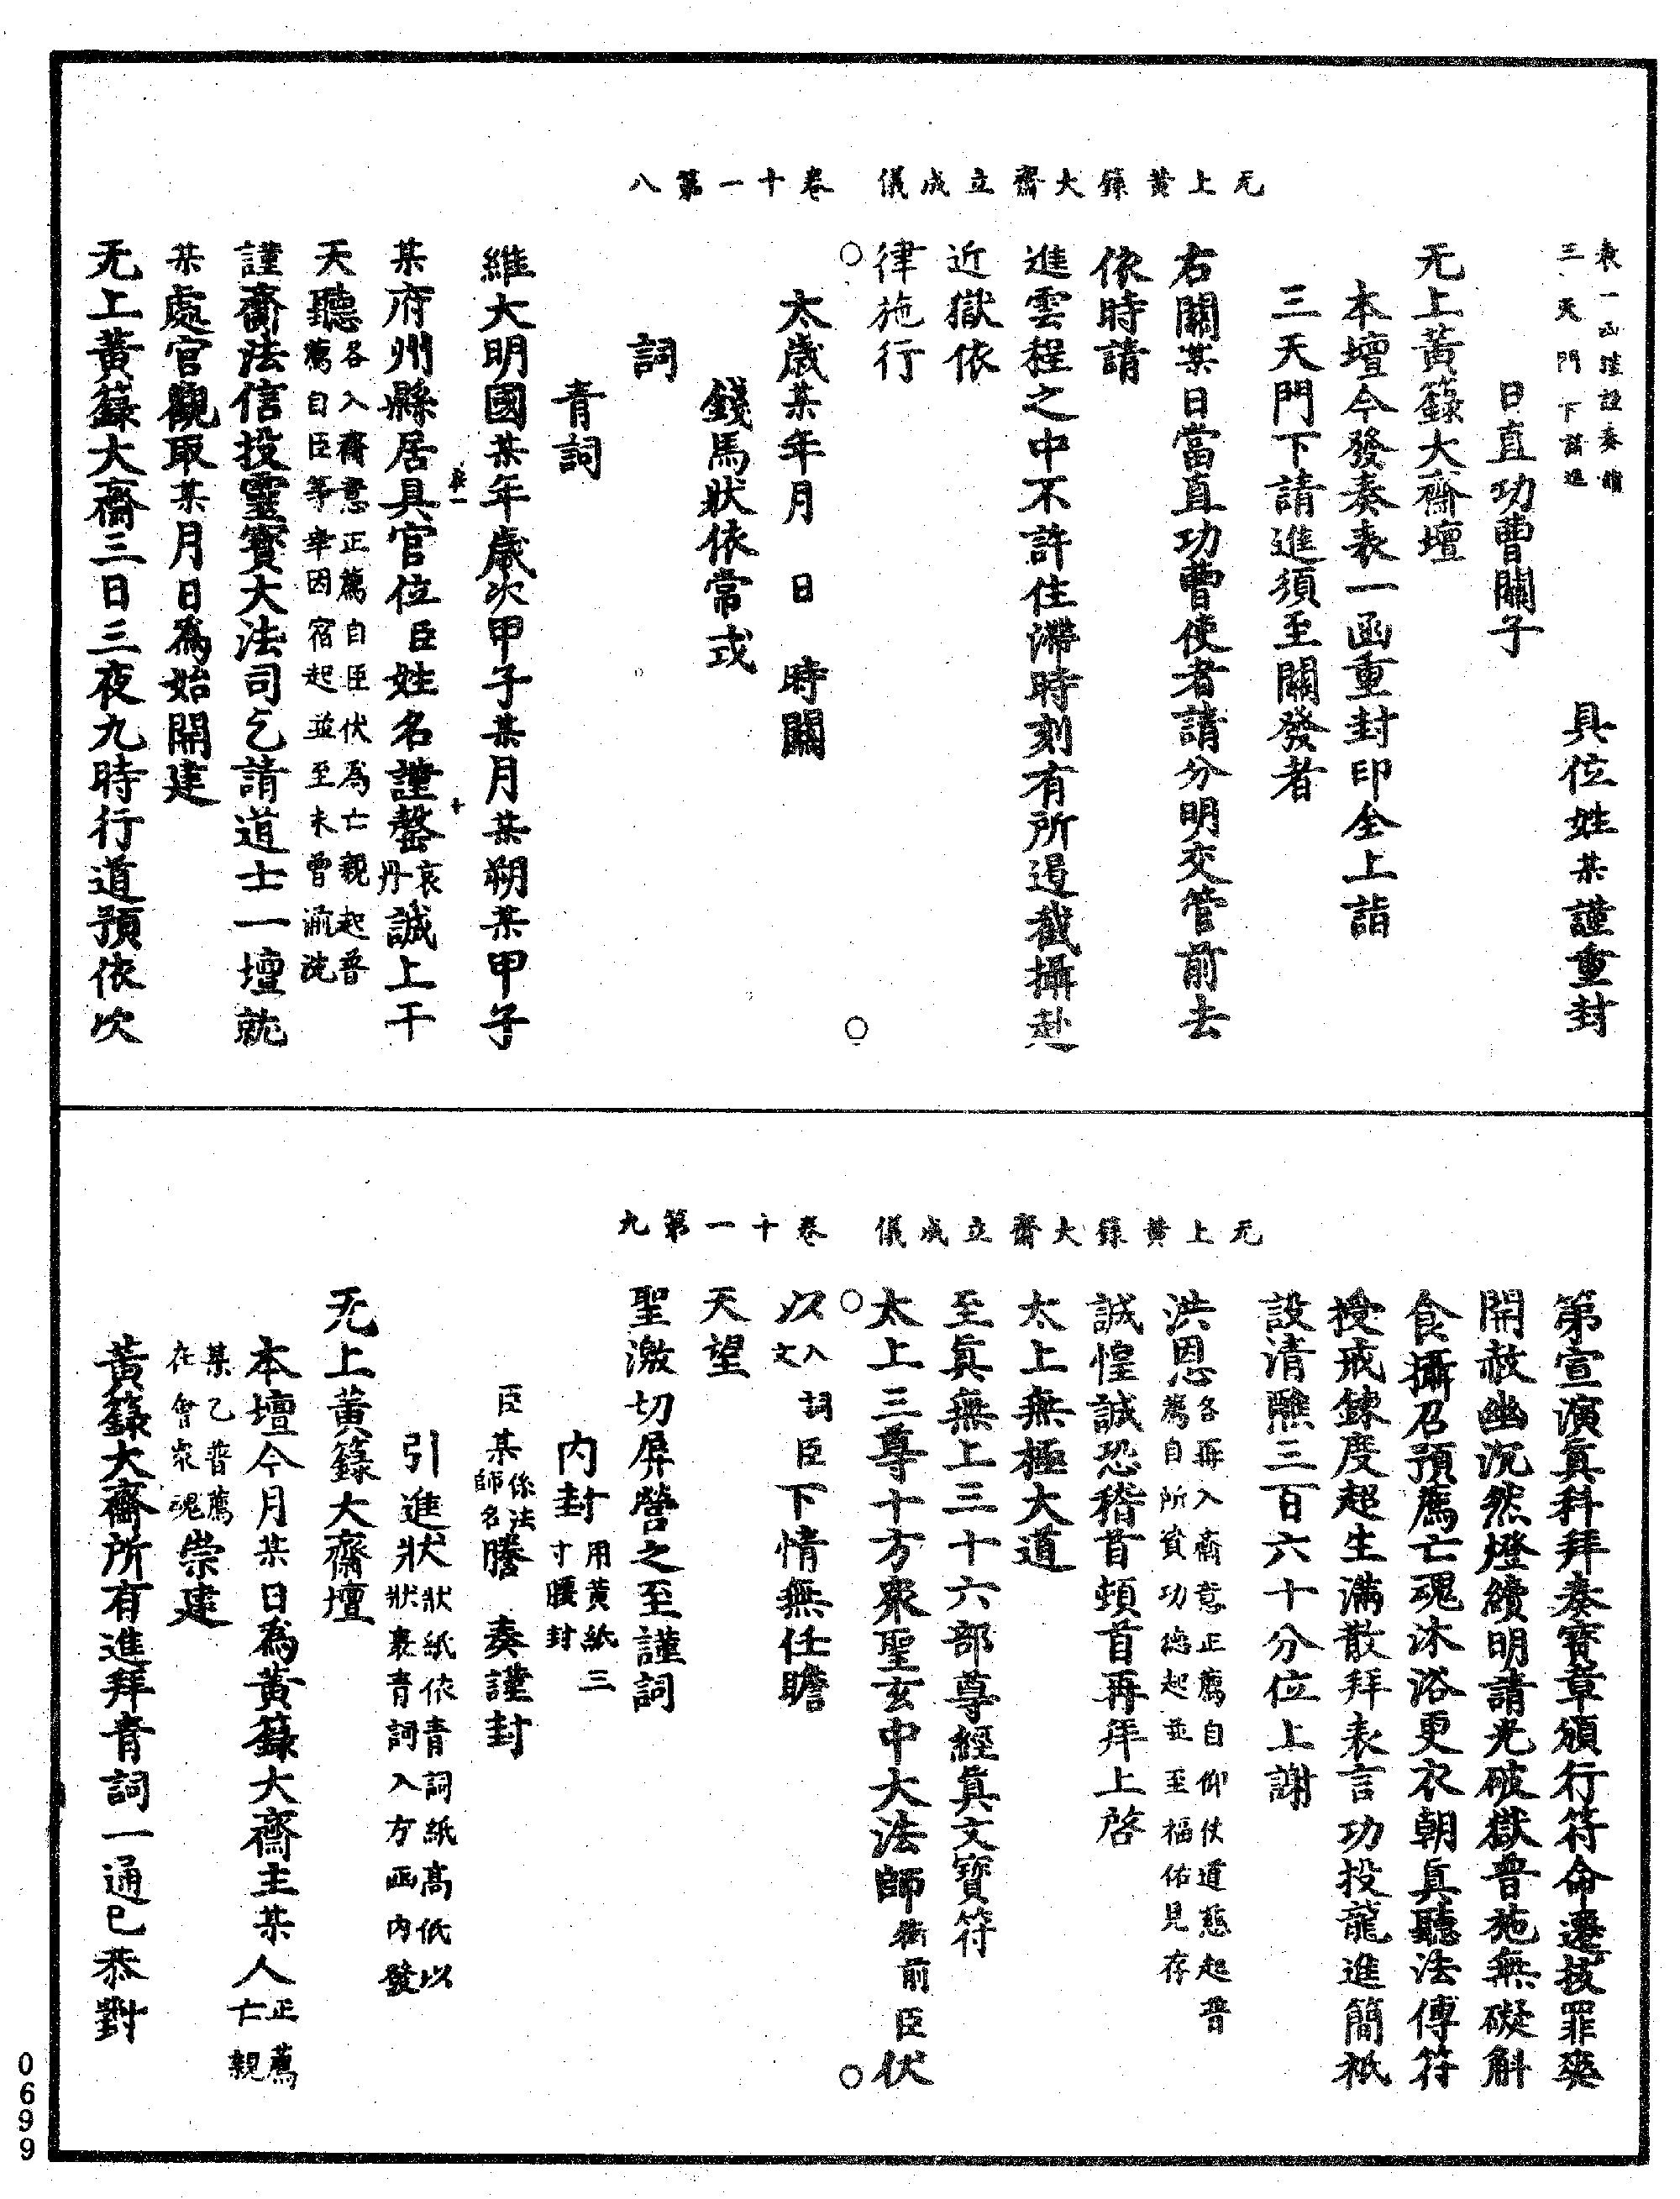 无上黃籙大齋立成儀　卷十一第八
表一函謹謹奏請
三天門下請進
具位姓某謹重封
日直功曹關子
无上黃籙大齋壇
本壇今發奏表一函重封印全上詣
三天門下請進須至關發者
右關某日當直功曹使者請分明交管前去
依時請
進雲程之中不許住滯時刻有所遏截攝赴
近獄依
律施行
太歲某年月　日　時關
錢馬狀依常式
詞
青詞
維大明國某年歲次甲子某月某朔某甲子
某府州縣居具官位臣姓名謹罄哀丹誠上干
天聽各入齋意正薦自臣伏為亡親起普
薦自臣等幸因宿起並至未曾湔洗
謹齋法信投靈寶大法司乞請道士一壇就
某處官觀取某月日為始開建
无上黃籙大齋三日三夜九時行道預依次
无上黃籙大齋立成儀　卷十一第九
第宣演眞科拜奏寶章頒行符命遷拔罪爽
開赦幽沉然燈續明請光破獄普施無礙斛
食攝召預薦亡魂沐浴更衣朝眞聽法傳符
授戒鍊度超生滿散拜表言功投龍進簡祇
設清醮三百六十分位上謝
洪恩各再入齋意正薦自仰仗道慈起普
薦自所資功德起並至福佑見存
誠惶誠恐稽首頓首再拜上啓
太上無極大道
至眞無上三十六部尊經眞文寶符
太上三尊十方衆聖玄中大法師衛前臣伏
以入文詞臣下情無任瞻
天望
聖激切屏營之至謹詞
內封用黃紙三
寸腰封
臣某係法師名謄　奏謹封
引進狀狀紙依青詞紙高低以
狀裹青詞入方函內發
无上黃籙大齋壇
本壇今月某日為黃籙大齋主某人正薦亡親
某乙普薦在會衆魂崇建
黃籙大齋所有進拜青詞一通已恭對
0699